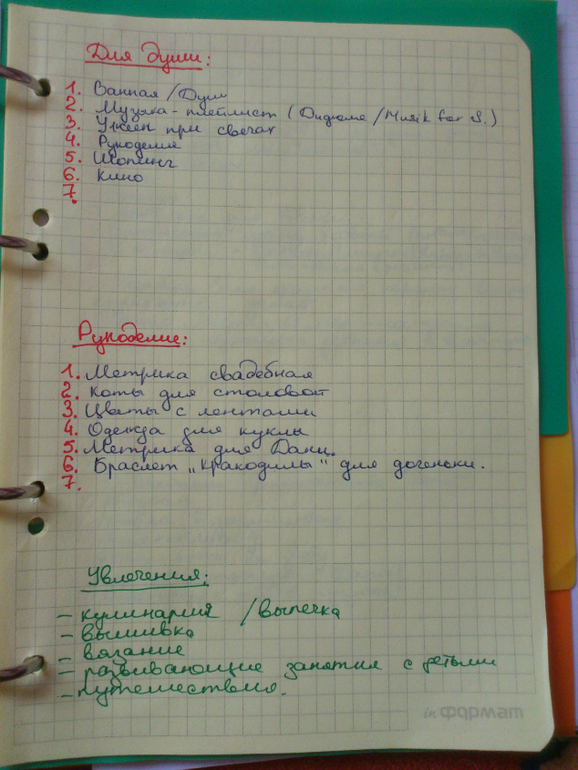 Для души:
1. Ванная / Душ
2. Музыка - плейлист ( Дидюля / Musik for S.)
3. Ужин при свечах
4. Рукоделие
5. Шопинг
6. Кино
7.
Рукоделие:
1. Метрика свадебная
2. Коты для столовой
3. Цветы с лентами
4. Одежда для куклы
5. Метрика для Дани.
6. Браслет „крокодилы" для доченьки.
7.
Увлечения:
- кулинария / выпечка
- вышивка
- вязание
- развивающие занятия с детьми
- путешествия.
inФОРМАТ